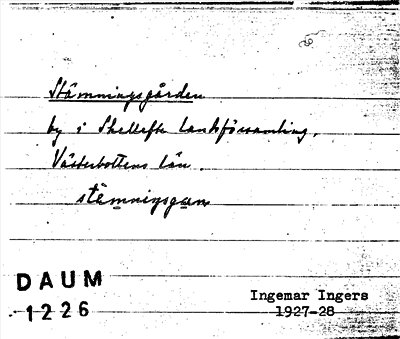 Stämningsgården
by i Skellefte landsförsamling,
Västerbottens län.
stämnịŋsgạṇ
DAUM
1226
Ingemar Ingers
1927-28